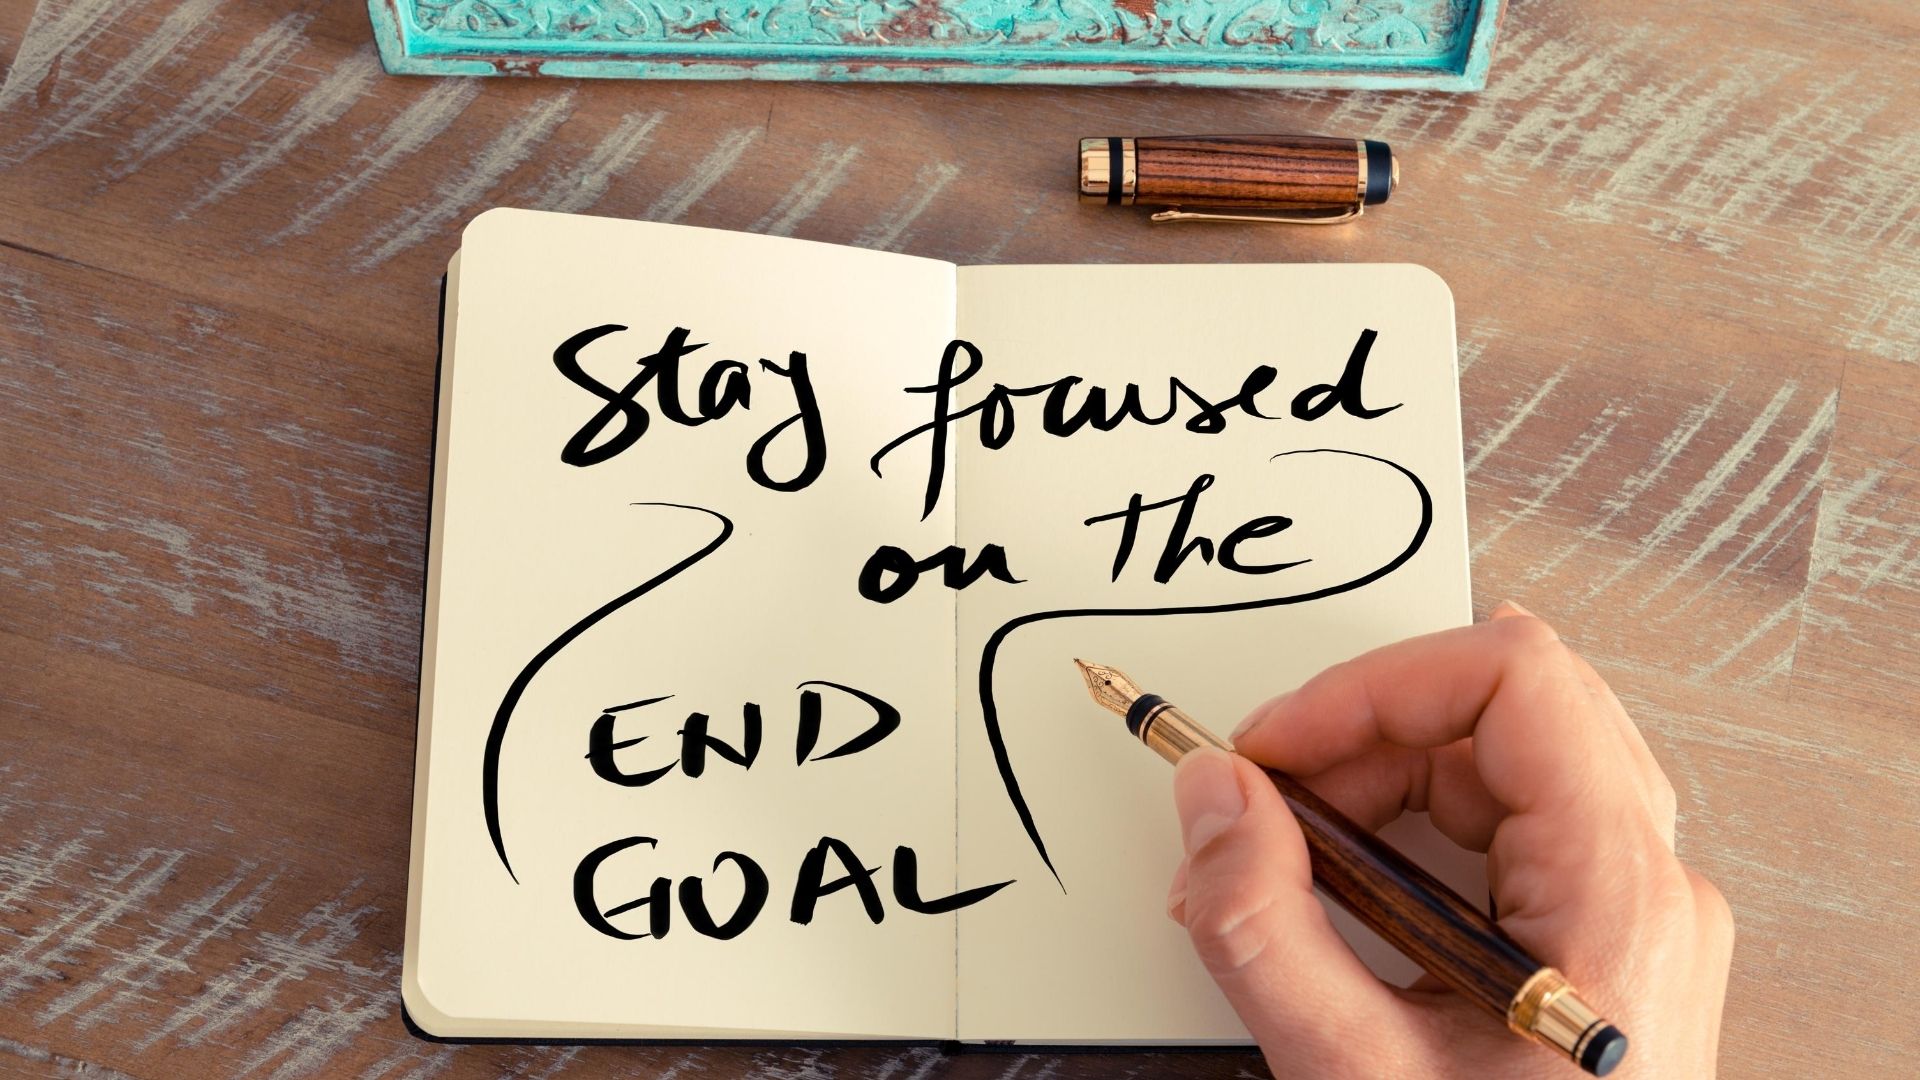 Stay focused
on the
END
GOAL